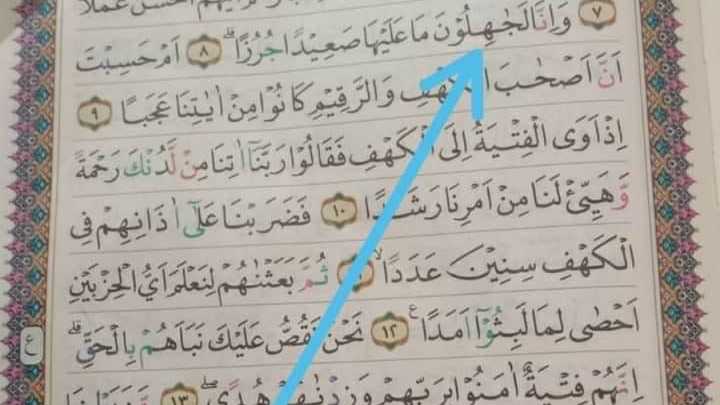 اَحْسَنُ عَمَلًا
٧ وَاِنَّا لَجٰهِلُوْنَ مَا عَلَيْهَا صَعِيْدًا جُرُزًاۗ ٨ اَمْ حَسِبْتَ
اَنَّ اَصْحٰبَ الْكَهْفِ وَالرَّقِيْمِ كَانُوْا مِنْ اٰيٰتِنَا عَجَبًا ٩
اِذْ اَوَى الْفِتْيَةُ اِلَى الْكَهْفِ فَقَالُوْا رَبَّنَآ اٰتِنَا مِنْ لَّدُنْكَ رَحْمَةً
وَّهَيِّئْ لَنَا مِنْ اَمْرِنَا رَشَدًا ١٠ فَضَرَبْنَا عَلٰٓى اٰذَانِهِمْ فِى
الْكَهْفِ سِنِيْنَ عَدَدًاۙ ثُمَّ بَعَثْنٰهُمْ لِنَعْلَمَ اَيُّ الْحِزْبَيْنِ
اَحْصٰى لِمَا لَبِثُوْٓا اَمَدًا ࣖ ١٢ نَحْنُ نَقُصُّ عَلَيْكَ نَبَاَهُمْ بِالْحَقِّۗ
ع
اِنَّهُمْ فِتْيَةٌ اٰمَنُوْا بِرَبِّهِمْ وَزِدْنٰهُمْ هُدًىۖ ١٣